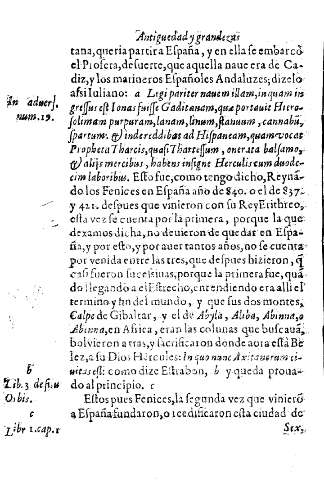 Antiguedad y grandezas
tana, queria partir a España, y en ella se embarcó
el Profeta, de suerte, que aquella naue era de Ca-
diz, y los marineros Españoles Andaluzes; dizelo
assi Iuliano: a Legi pariter nauem illam, in quam in
gressus est Ionas fuisse Gaditanam, quæ portauit Hiero-
solimam purpuram, lanam, linum, stannum, cannabũ,
spartum. & inde reddibat ad Hispaneam, quam vocat
Propheta Tharcis, quasi Thartessum, onerata balsamo,
& alijs mercibus, habens insigne Herculis cum duode-
cim laboribus. Esto fue, como tengo dicho, Reynã
do los Fenices en España año de 840. o el de 837.
y 421. despues que vinieron con su Rey Erithreo,
esta vez se cuenta por la primera, porque la que
dexamos dicha, no deuieron de quedar en Espa-
ña, y por esto, y por auer tantos años, no se cuenta
por venida entre las tres, que despues hizieron, q̃
casi fueron sucessiuas, porque la primera fue, quã
do llegando a el Estrecho, entendiendo era alli el
termino y fin del mundo, y que sus dos montes,
Calpe de Gibaltar, y el de Abyla, Aliba, Abinna, o
Abinna, en Africa, eran las colunas que buscauã,
boluieron atras, y sacrificaron donde aora està Be
lez, a su Dios Hercules: In quo nunc Axitanorum ci-
uitas est: como dize Estrabon, b y queda proua-
do al principio. c
Estos pues Fenices, la segunda vez que vinierõ
a España fundaron, o reedificaron esta ciudad de
Sex,
a
In aduers.
num. 19.
b
Lib. 3. de situ
Orbis.
c
Libr 1. cap. 1